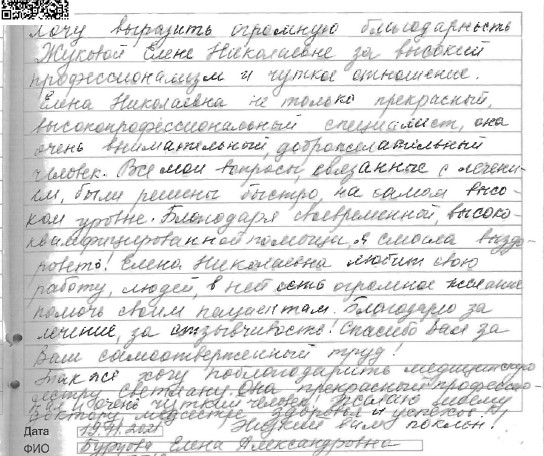 Хочу выразить огромную благодарность
Жуковой Елене Николаевне за высокий
профессионализм и чуткое отношение.
Елена Николаевна не только прекрасный,
высокопрофессиональный специалист, она
очень внимательный, доброжелательный
человек. Все мои вопросы, связанные с лечени-
ем, были решены быстро, на самом высо-
ком уровне. Благодаря своевременной, высоко-
квалифицированной помощи, я смогла выздо-
роветь! Елена Николаевна любит свою
работу, людей, в ней есть огромное желание
помочь своим пациентам. Благодарю за
лечение, за отзывчивость! Спасибо вам за
Ваш самоотверженный труд!
Также хочу поблагодарить медицинскую
сестру Светлану. Она прекрасный профессио-
нал и очень чуткий человек! Желаю моему
доктору и медсестре здоровья и успехов!
Дата 19.11.2021 Низкий вам поклон!
ФИО Бурцова Елена Александровна